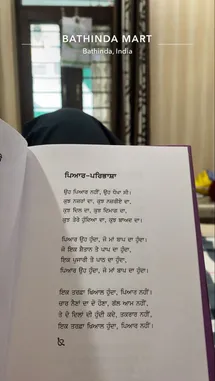 BATHINDA MART
Bathinda, India
ਪਿਆਰ-ਪਰਿਭਾਸ਼ਾ
ਉਹ ਪਿਆਰ ਨਹੀਂ, ਉਹ ਧੋਖਾ ਸੀ।
ਕੁਝ ਨਜ਼ਰਾਂ ਦਾ, ਕੁਝ ਨਜ਼ਰੀਏ ਦਾ,
ਕੁਝ ਦਿਲ ਦਾ, ਕੁਝ ਦਿਮਾਗ ਦਾ,
ਕੁਝ ਤੇਰੇ ਹੁੰਦਿਆਂ ਦਾ, ਕੁਝ ਬਾਅਦ ਦਾ।
ਪਿਆਰ ਉਹ ਹੁੰਦਾ, ਜੋ ਮਾਂ ਬਾਪ ਦਾ ਹੁੰਦਾ।
ਜੋ ਇਕ ਸ਼ੈਤਾਨ ਤੋਂ ਪਾਪ ਦਾ ਹੁੰਦਾ,
ਇਕ ਪੁਜਾਰੀ ਤੋਂ ਪਾਠ ਦਾ ਹੁੰਦਾ,
ਪਿਆਰ ਉਹ ਹੁੰਦਾ, ਜੋ ਮਾਂ ਬਾਪ ਦਾ ਹੁੰਦਾ।
ਇਕ ਤਰਫ਼ਾ ਖਿਆਲ ਹੁੰਦਾ, ਪਿਆਰ ਨਹੀਂ।
ਚਾਰ ਨੈਣਾਂ ਦਾ ਏ ਹੋਣਾ, ਗੱਲ ਆਮ ਨਹੀਂ,
ਤੇ ਦੋ ਦਿਲਾਂ ਦੀ ਹੁੰਦੀ ਕਦੇ, ਤਕਰਾਰ ਨਹੀਂ,
ਇਕ ਤਰਫ਼ਾ ਖਿਆਲ ਹੁੰਦਾ, ਪਿਆਰ ਨਹੀਂ।